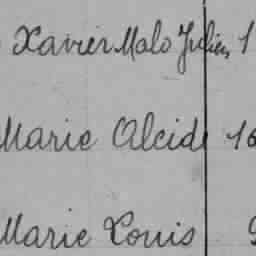 Xavier Malo Julien 1
Marie Alcide 16
Marie Louis